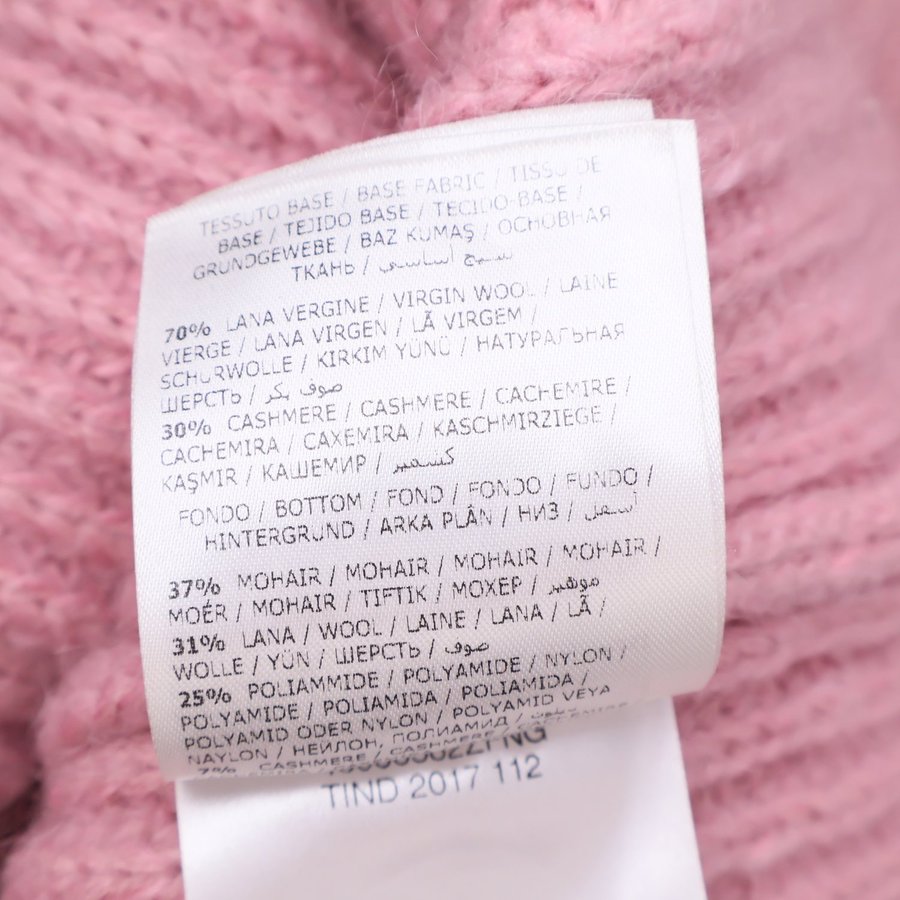 TESSUTO BASE / BASE FABRIC / TISSU DE
BASE / TEJIDO BASE / TECIDO-BASE /
GRUNDGEWEBE / BAZ KUMAŞ / ОСНОВНАЯ
ТКАНЬ / نسيج أساسي
70% LANA VERGINE / VIRGIN WOOL / LAINE
VIERGE / LANA VIRGEN / LÃ VIRGEM /
SCHURWOLLE / KIRKIM YÜNÜ / НАТУРАЛЬНАЯ
ШЕРСТЬ / صوف بكر
30% CASHMERE / CASHMERE / CACHEMIRE /
CACHEMIRA / CAXEMIRA / KASCHMIRZIEGE /
KAŞMIR / КАШЕМИР / كشمير
FONDO / BOTTOM / FOND / FONDO / FUNDO /
HINTERGRUND / ARKA PLÂN / НИЗ / أسفل
37% MOHAIR / MOHAIR / MOHAIR / MOHAIR /
MOÉR / MOHAIR / TIFTIK / МОХЕР / موهير
31% LANA / WOOL / LAINE / LANA / LÃ /
WOLLE / YÜN / ШЕРСТЬ / صوف
25% POLIAMMIDE / POLYAMIDE / NYLON /
POLYAMIDE / POLIAMIDA / POLIAMIDA /
POLYAMID ODER NYLON / POLYAMID VEYA
NAYLON / НЕЙЛОН, ПОЛИАМИД /
7% CASHMERE / CASHMERE /
TIND 2017 112